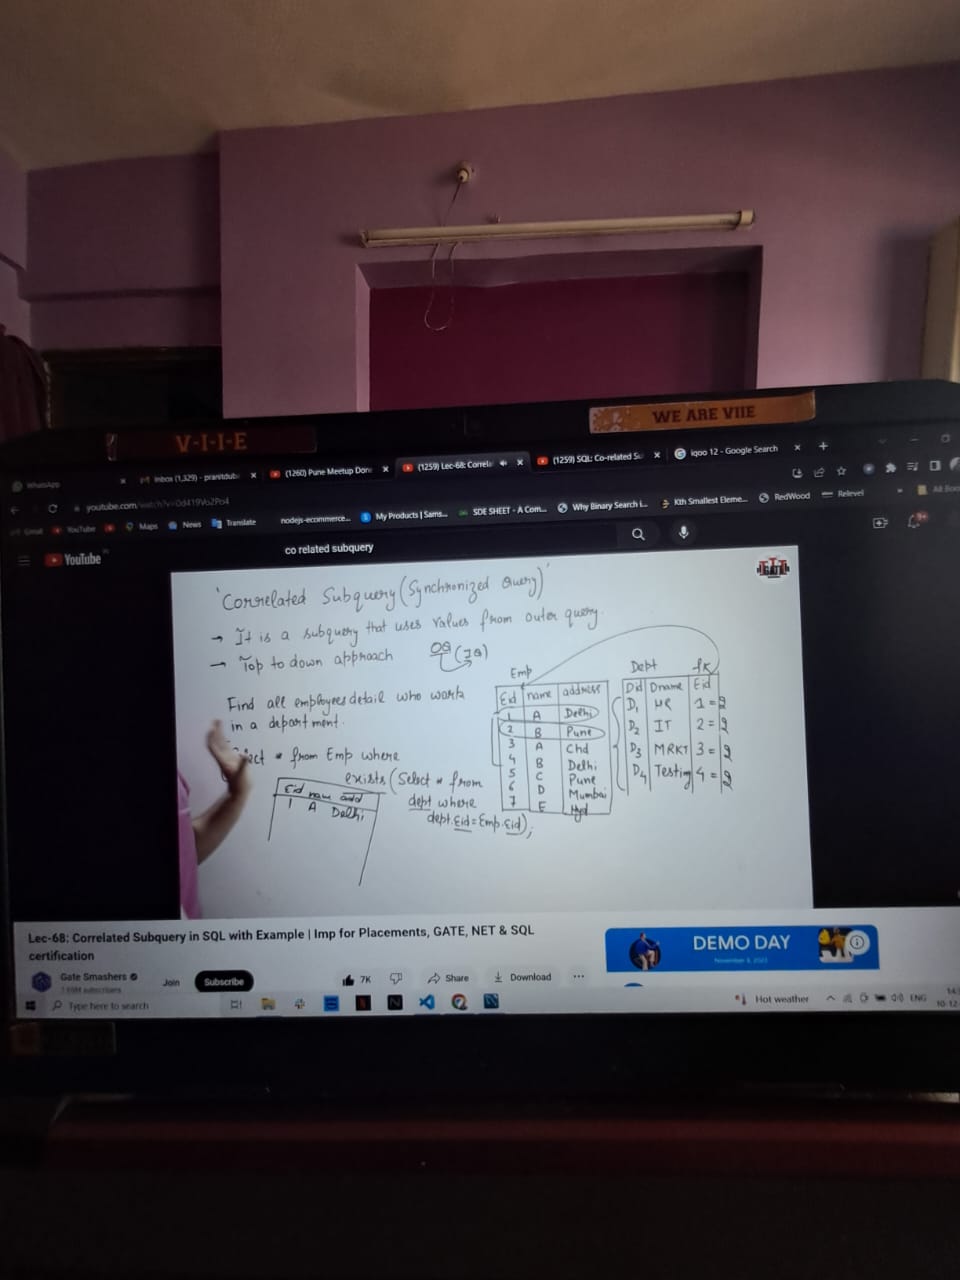 V-I-I-E
WE ARE VIIE
WhatsApp
Inbox (1,329) - pranitdub
(1260) Pune Meetup Don
(1259) Lec-68: Correla
(1259) SQL: Co-related Su
iqoo 12 - Google Search
youtube.com/watch?v=
Gmail
YouTube
Maps
News
Translate
nodejs-ecommerce...
My Products | Sams...
SDE SHEET - A Com...
Why Binary Search i...
Kth Smallest Eleme...
RedWood
Relevel
All Boo
YouTube
co related subquery
GATE
'Correlated Subquery (Synchronized Query)'
→ It is a subquery that uses values from outer query.
→ Top to down approach OQ (IQ)
Find all employees detail who work
in a department.
* from Emp where
exists (Select * from
dept where
dept.Eid=Emp.Eid);
Eid name add
1 A Delhi
Emp
Eid name address
1 A Delhi
2 B Pune
3 A Chd
4 B Delhi
5 C Pune
6 D Mumbai
7 E Hyd
Dept fk
Did Dname Eid
D1 HR 1 = 2
D2 IT 2 = 2
D3 MRKT 3 = 2
D4 Testing 4 = 2
Lec-68: Correlated Subquery in SQL with Example | Imp for Placements, GATE, NET & SQL
certification
Gate Smashers
subscribers
Join
Subscribe
7K
Share
Download
...
DEMO DAY
November 8, 2023
Type here to search
Hot weather
ENG